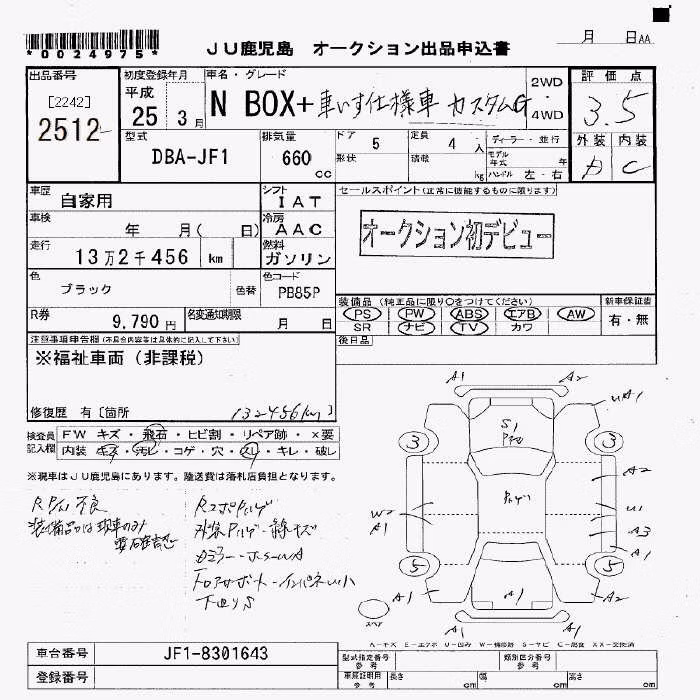 *0024975*
JU鹿児島 オークション出品申込書
月 日AA
出品番号
[2242]
2512
初度登録年月
平成
25 3月
車名・グレード
N BOX+ 車いす仕様車 カスタムG
2WD
・
4WD
評価点
3.5
外装 内装
A C
型式
DBA-JF1
排気量
660
cc
ドア 5
形状
定員 4 人
積載 kg
ディーラー・並行
モデル年式 年
ハンドル 左・右
車歴
自家用
シフト
IAT
車検
年 月( 日)
冷房
AAC
走行
13万2千456 km
燃料
ガソリン
色
ブラック
色替
色コード
PB85P
R券
9,790 円
名変通知期限
月 日
セールスポイント(正常に機能するものに限ります)
オークション初デビュー
装備品(純正品に限り○をつけてください)
PS PW ABS エアB AW
SR ナビ TV カワ
新車保証書
有・無
後日品
注意事項申告欄(不具合内容等は具体的に記入して下さい)
※福祉車両(非課税)
修復歴 有〔箇所 132456km〕
検査員
記入欄
FW キズ・飛石・ヒビ割・リペア跡・×要
内装 キズ・汚レ・コゲ・穴・スレ・キレ・破レ
※現車はJU鹿児島にあります。陸送費は落札店負担となります。
A1 A2
UA1
S1
3 3
A2
W2
A1
U1
A3
A1
5 5
A1 A1 A2
A1 A1
スペア
A-キズ E-エクボ U-凹み W-補修跡 S-サビ C-腐食 XX-交換済
車台番号
JF1-8301643
登録番号
型式指定番号
参考
類別区分番号
参考
車庫証明用
参考
長さ cm 幅 cm 高さ cm